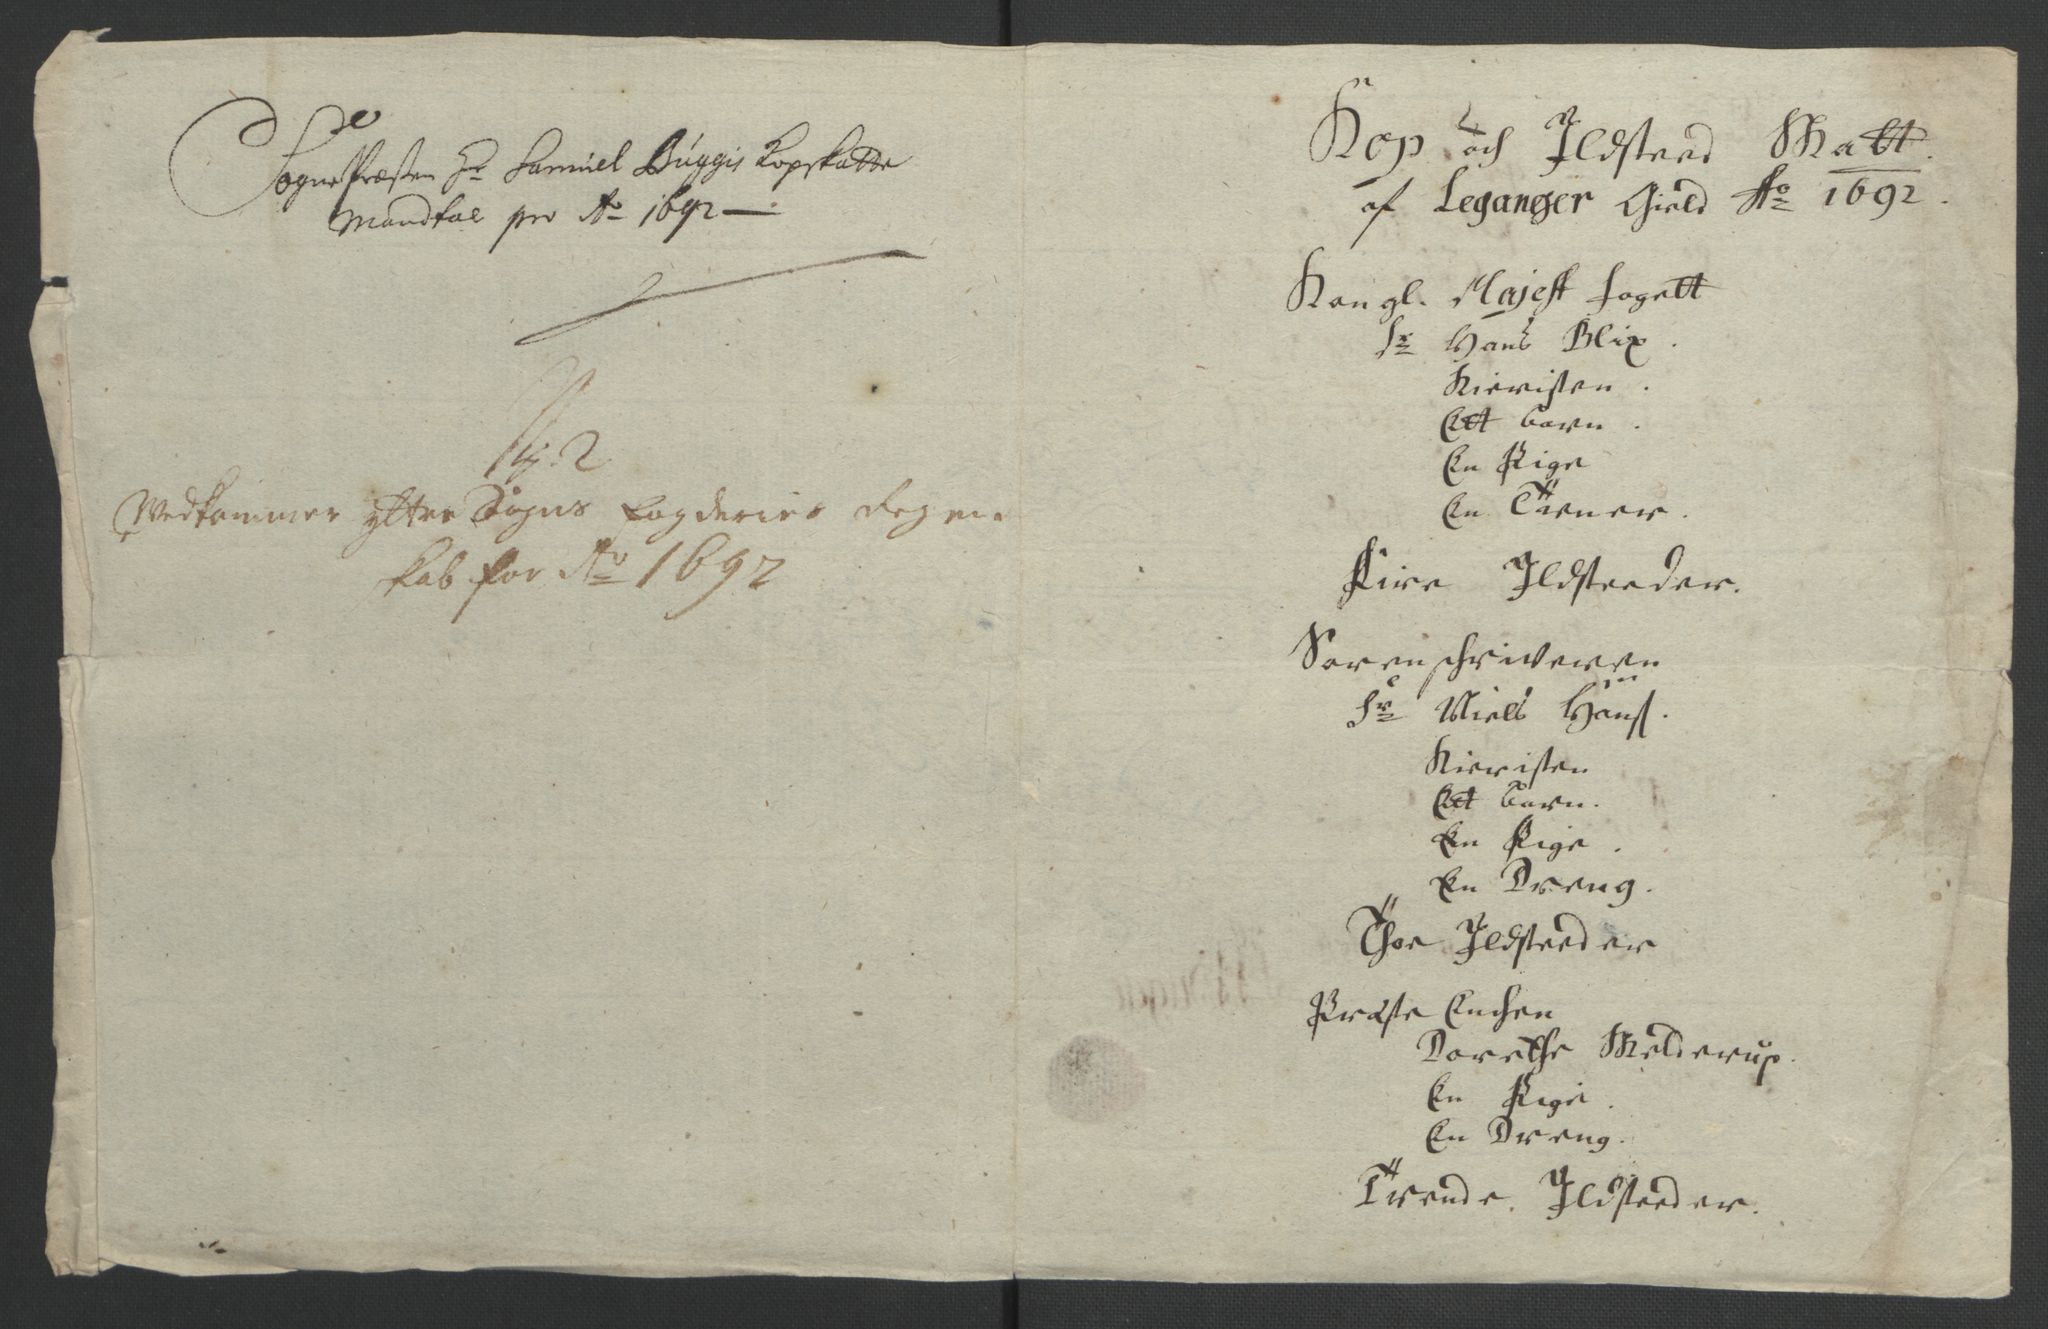 SognePræsten Hr Samuel Búggis Kopskatte
Mandtal pro Ao 1692
No. 2
Vedkommer Ÿttre Sogns Fogderies Regen-
skab for Ao 1692
Kop och Ildsteed Skatt
af Leganger Gield Ao 1692.
Kongl. Majest fogett
Sr Hans Blix.
Kieristen.
Ett barn.
En Pige
En Tiener.
Fire Ildsteeder.
Sorenschriveren
Sr Niels Hanss.
Kieristen
Ett barn.
En Pige.
En Dreng.
Thoe Ildsteeder
Præste Enchen
Dorethe Melderup.
En Pige.
En Dreng.
Trende Ildsteeder.